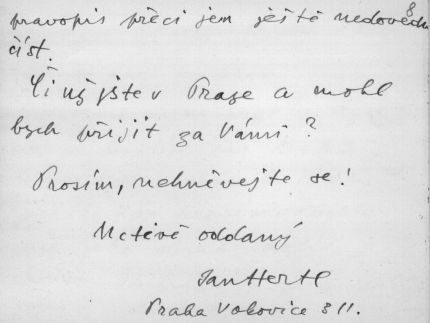 pravopis přeci jen ještě nedovedu
číst.
Či už jste v Praze a mohl
bych přijít za Vámi?
Prosím, nehněvejte se!
Uctivě oddaný
Jan Hertl
Praha Vokovice 311.